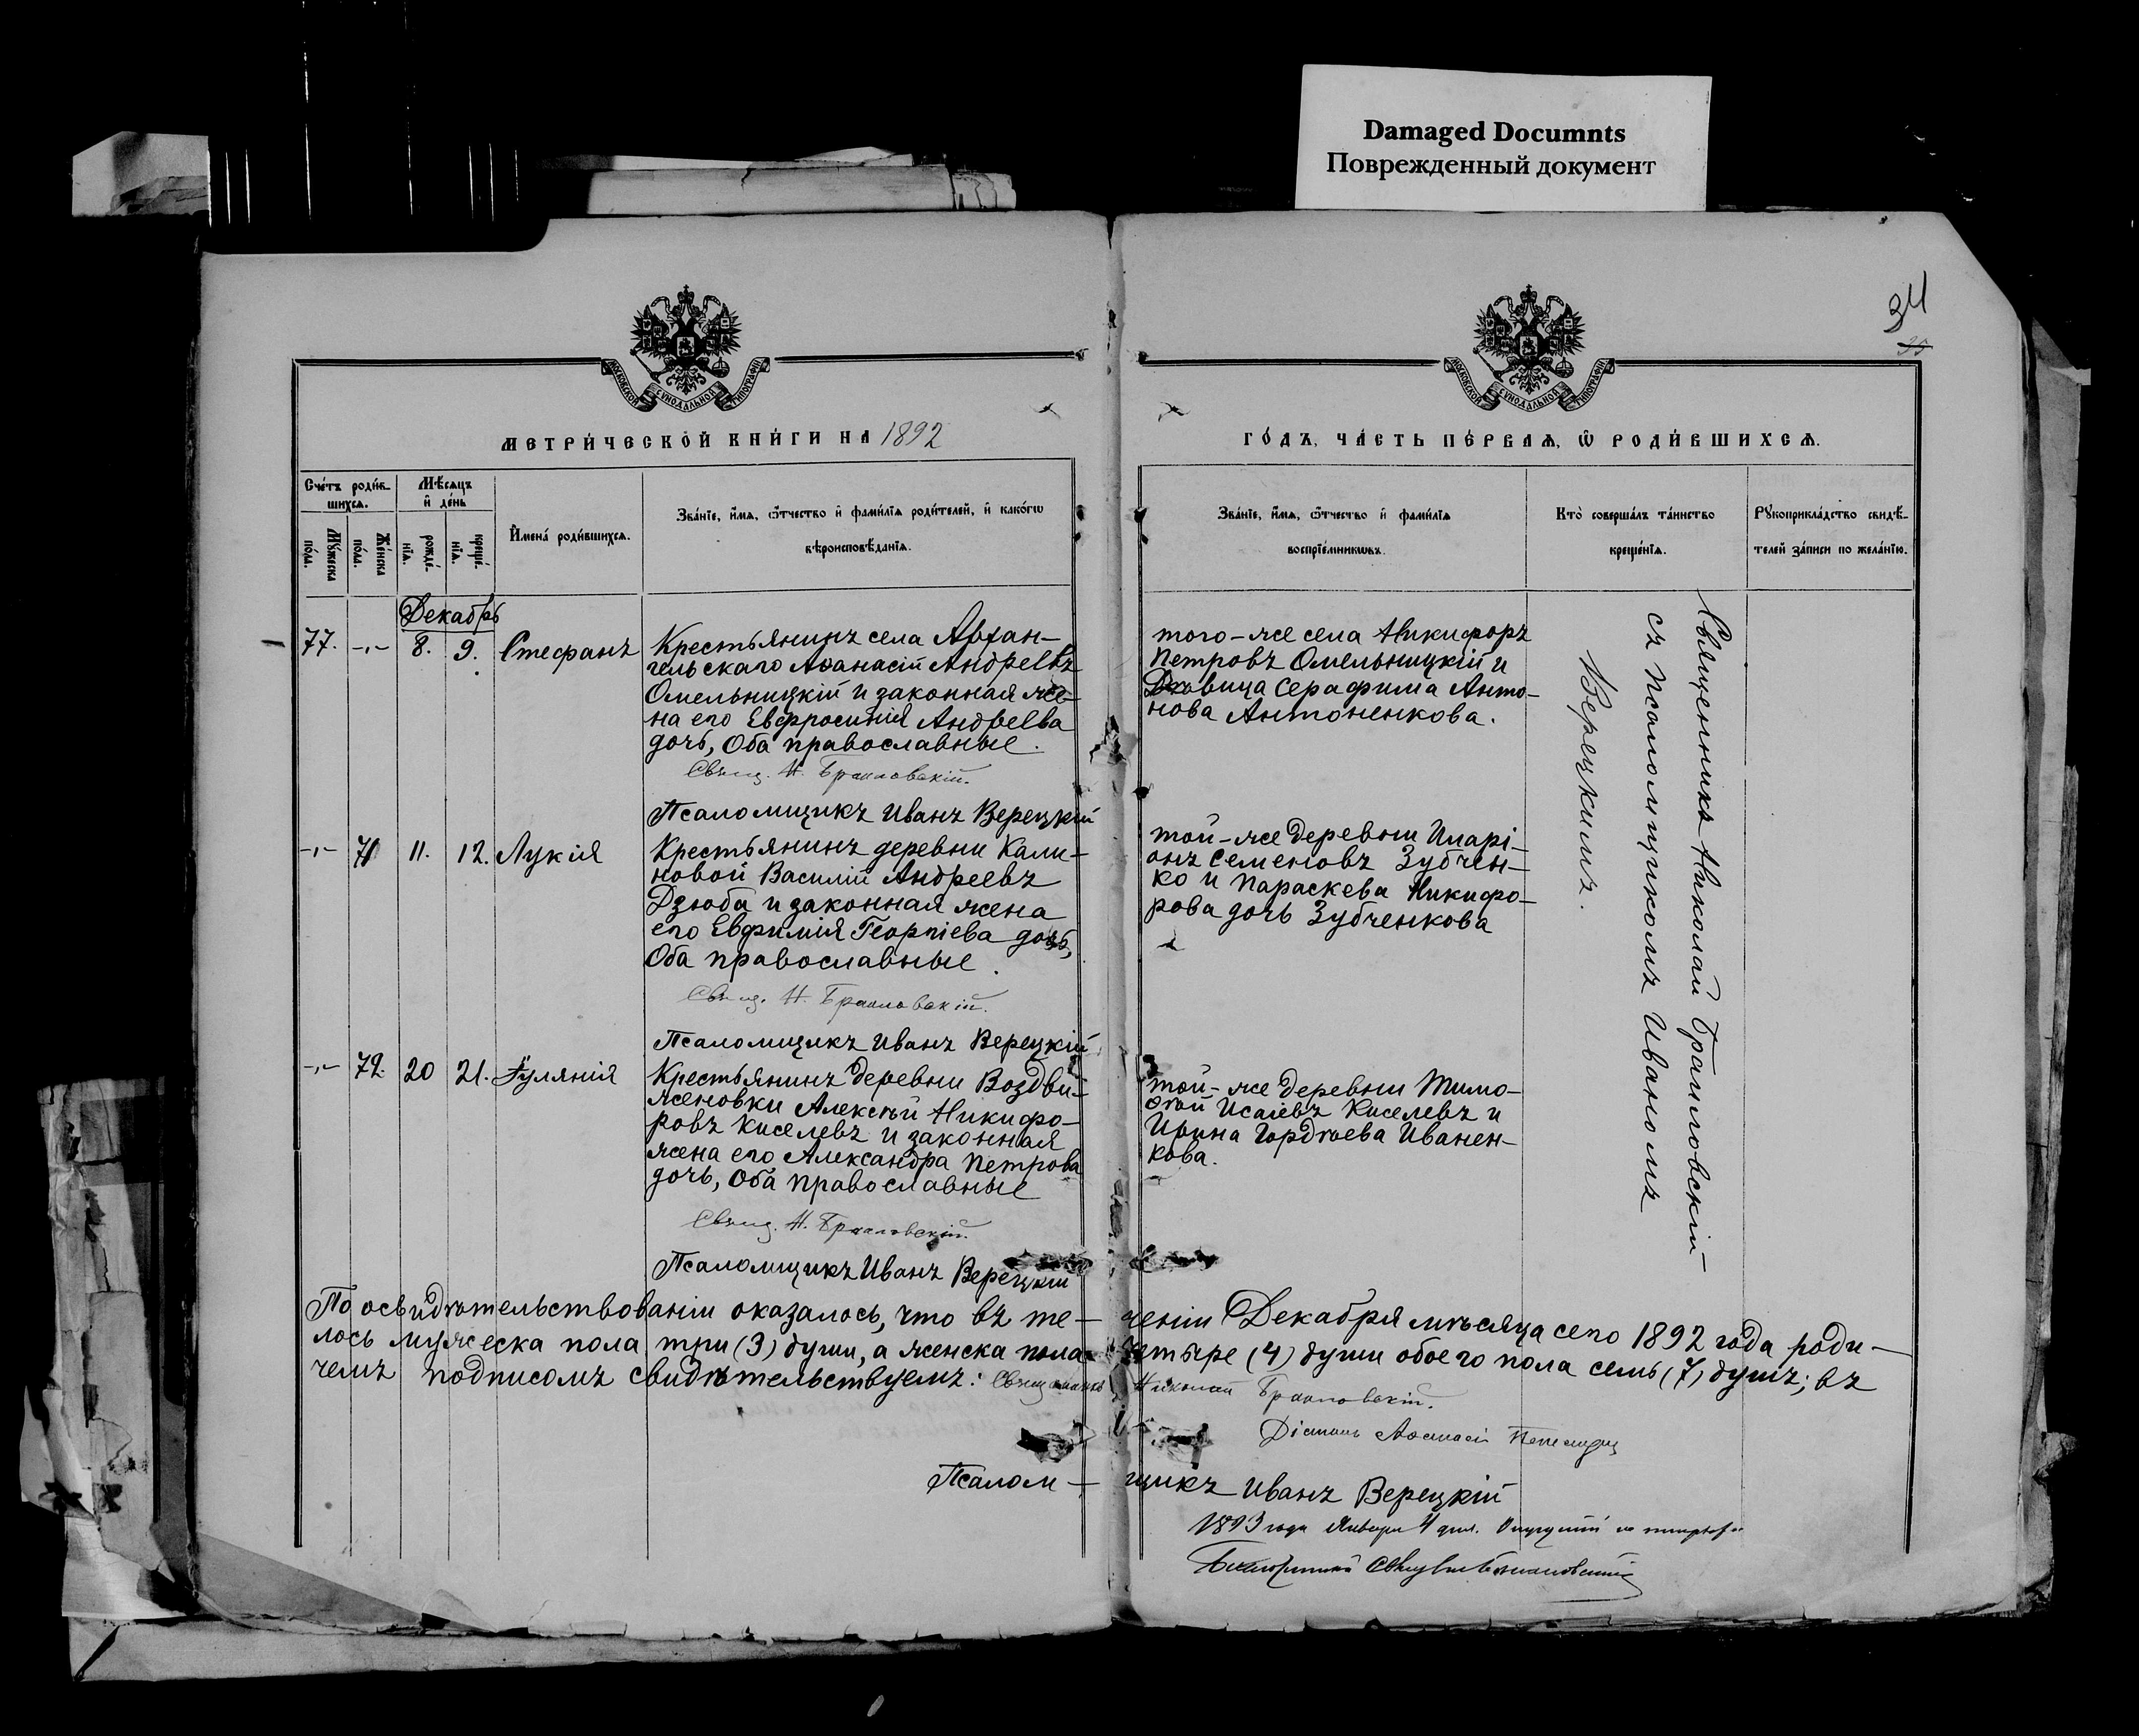 Damaged Documnts
Поврежденный документ
34
35
МОСКОВСКОЙ СѴНОДАЛЬНОЙ ТИПОГРАФІИ
МОСКОВСКОЙ СѴНОДАЛЬНОЙ ТИПОГРАФІИ
МЕТРИ́ЧЕСКОЙ КНИ́ГИ НА 1892
ГО́ДЪ, ЧА́СТЬ ПЕ́РВАѦ, Ѿ РОДИ́ВШИХСѦ.
Сче́тъ роди́в-
шихсѧ.
Мѣ́сѧцъ
и҆ де́нь
Мꙋ́жеска
по́ла.
Же́нска
по́ла.
рожде́-
нїѧ.
креще́-
нїѧ.
И҆мена̀ роди́вшихсѧ.
Зва́нїе, и҆́мѧ, ѻ҆́тчество и҆ фами́лїѧ роди́телей, и҆ како́гѡ
вѣроисповѣ́данїѧ.
Зва́нїе, и҆́мѧ, ѻ҆́тчество и҆ фами́лїѧ
воспрїе́мникѡвъ.
Кто̀ соверша́лъ та́инство
креще́нїѧ.
Рꙋкоприкла́дство свидѣ́-
телей за́писи по жела́нїю.
Декабрь
77. -,,- 8. 9. Стефанъ
Крестьянинъ села Архан-
гельскаго Аѳанасій Андреевъ
Омельницкій и законная же-
на его Евфросинія Андреева
дочь, Оба православные.
Свящ. Н. Браиловскій.
Псаломщикъ Иванъ Верецкій
того-же села Никифоръ
Петровъ Омельницкій и
Девица Серафима Анто-
нова Антоненкова.
-,,- 71 11. 12. Лукія
Крестьянинъ деревни Кали-
новой Василій Андреевъ
Дзюба и законная жена
его Евфимія Георгіева дочь,
Оба православные.
Свящ. Н. Браиловскій.
Псаломщикъ Иванъ Верецкій
той-же деревни Иларі-
онъ Семеновъ Зубчен-
ко и Параскева Никифо-
рова дочь Зубченкова
-,,- 72. 20 21. Іуліянія
Крестьянинъ деревни Воздви-
женовки Алексѣй Никифо-
ровъ Киселевъ и законная
жена его Александра Петрова
дочь, Оба православные
Свящ. Н. Браиловскій.
Псаломщикъ Иванъ Верецкій
той-же деревни Тимо-
ѳей Исаіевъ Киселевъ и
Ирина Гордѣева Иванен-
кова.
Священникъ Николай Браиловскій
съ Псаломщикомъ Иваномъ
Верецкимъ.
По освидѣтельствованіи оказалось, что въ те-ченіи Декабря мѣсяца сего 1892 года роди-
лось мужеска пола три (3) души, а женска пола четыре (4) души обоего пола семь (7) душъ; въ
чемъ подписомъ свидѣтельствуемъ: Священникъ Николай Браиловскій.
Діаконъ Аѳанасій
Псалом-щикъ Иванъ Верецкій
1893 года Января 4 дня.